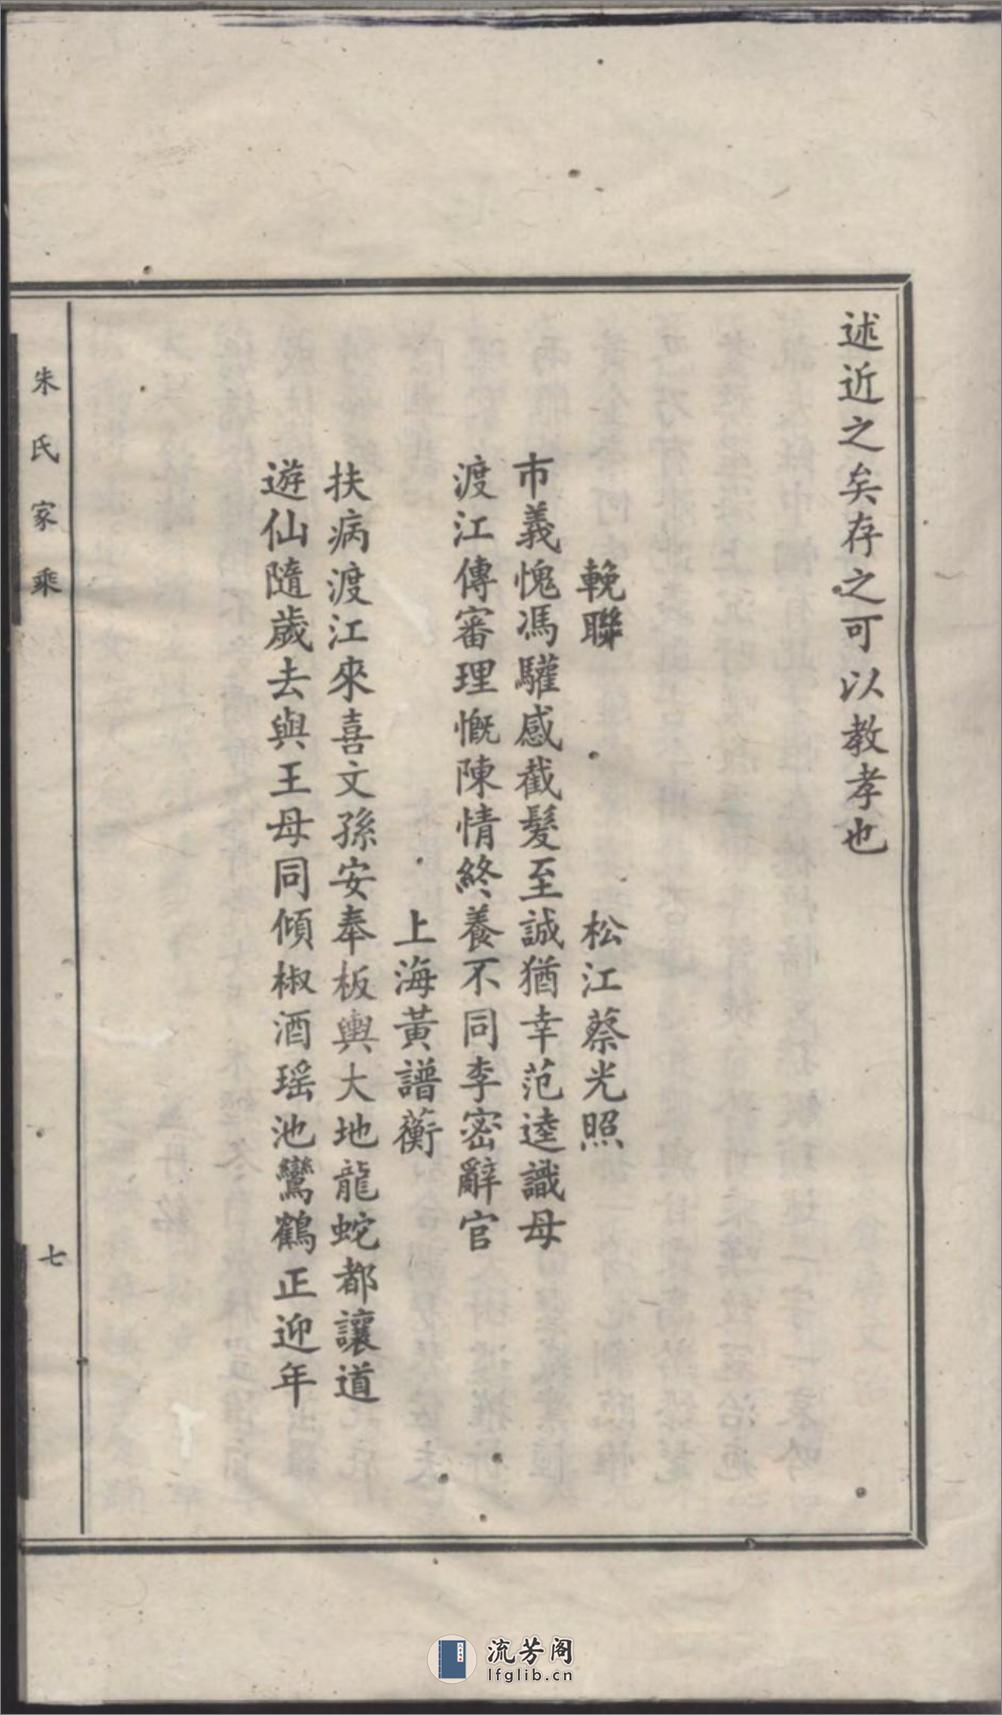 述近之矣存之可以教孝也
輓聯
松江蔡光照
市義愧馮驩感截髮至誠猶幸范逵識母
渡江傳審理慨陳情終養不同李密辭官
上海黃譜蘅
扶病渡江來喜文孫安奉板輿大地龍蛇都讓道
遊仙隨歲去與王母同傾椒酒瑶池鸞鶴正迎年
朱氏家乘
七
流芳阁
lfglib.cn